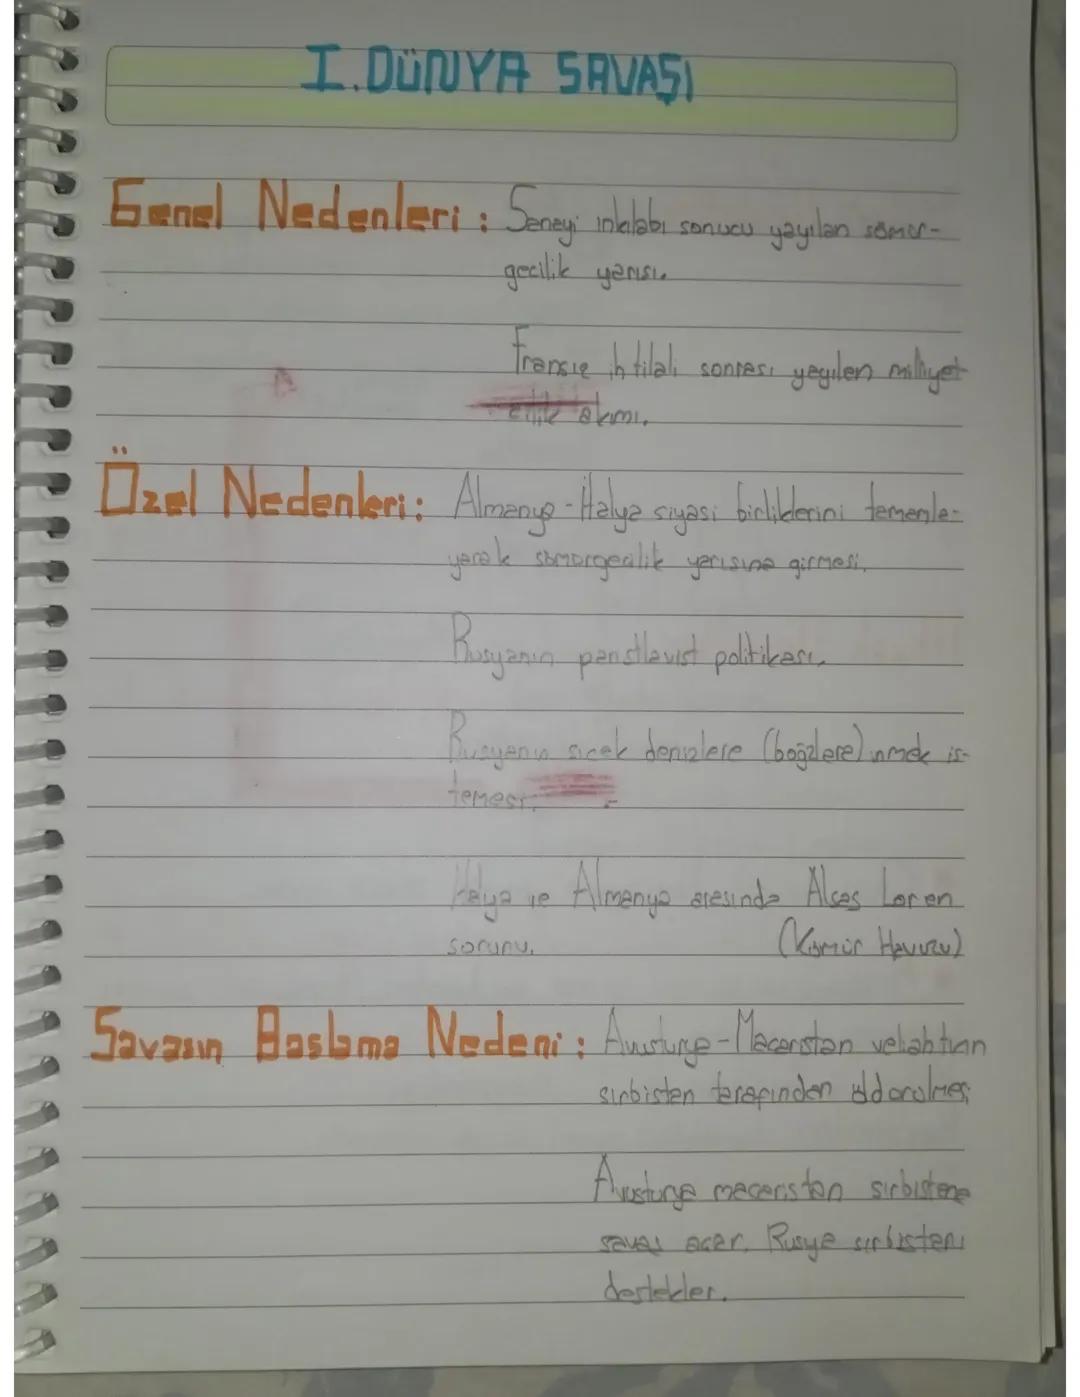 I. DÜNYA SAVAŞI
Genel Nedenleri : Saneyi inkılabı sonucu yayılan sömür-
gecilik yarışı.
Fransız ihtilali sonrası yayılan milliyet-
çilik akımı.
Özel Nedenleri : Almanya - İtalya siyasi birliklerini tamamla-
yarak sömürgecilik yarışına girmesi.
Rusyanın panstlavist politikası.
Rusyanın sıcak denizlere (boğazlara) inmek is-
temesi.
İtalya ve Almanya arasında Alsas Loren
sorunu. (Kömür Havuzu)
Savaşın Başlama Nedeni : Avusturya - Macaristan veliahtının
sırbistan tarafından öldürülmesi
Avusturya macaristan sırbistana
savaş açar. Rusya sırbistanı
destekler.